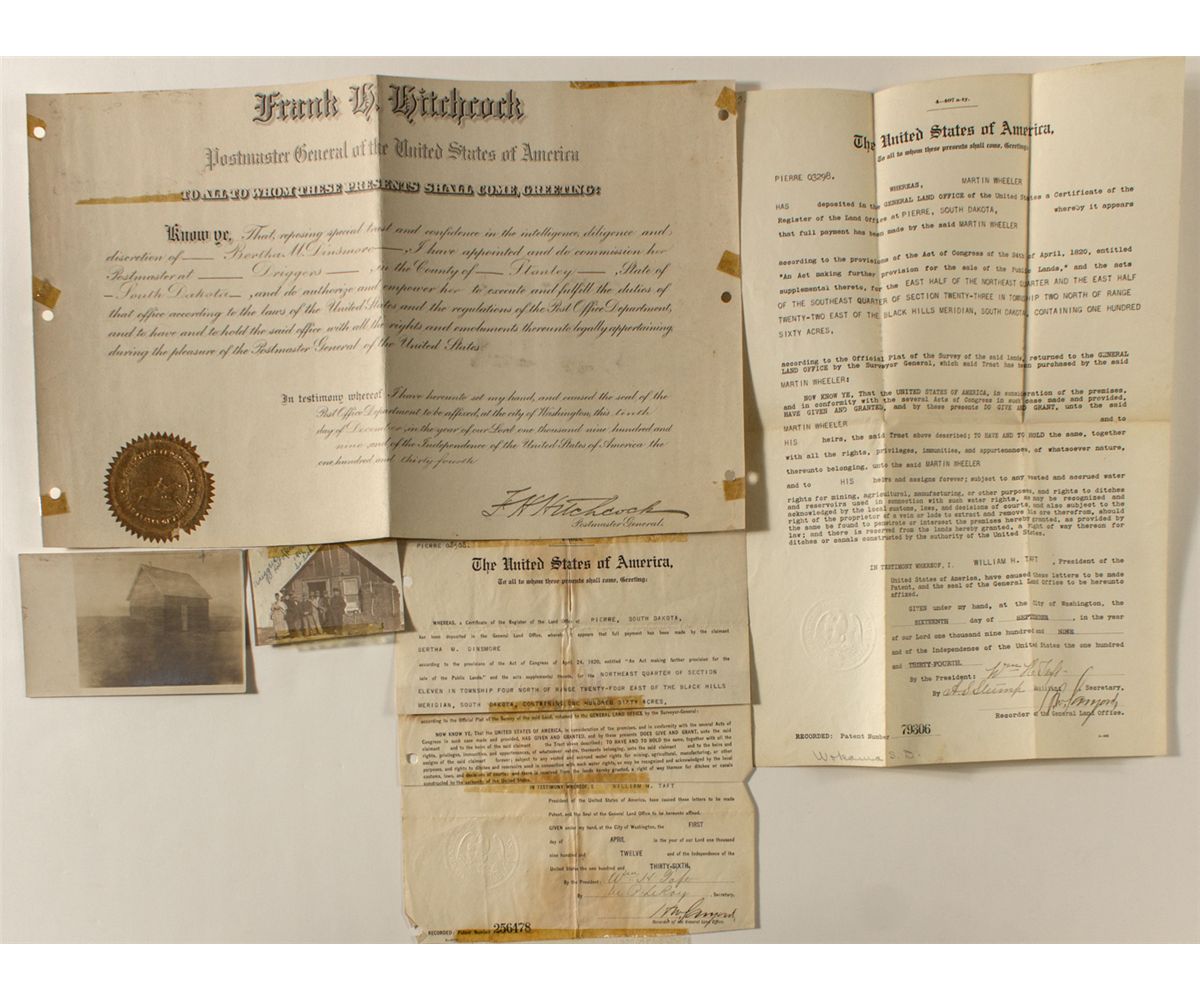 Frank H. Hitchcock
Postmaster General of the United States of America
TO ALL TO WHOM THESE PRESENTS SHALL COME, GREETING:
Know ye, That, reposing special trust and confidence in the intelligence, diligence and
discretion of Bertha M. Dinsmore, I have appointed and do commission her
Postmaster at Driggers, in the County of Stanley, State of
South Dakota, and do authorize and empower her to execute and fulfill the duties of
that office according to the laws of the United States and the regulations of the Post Office Department,
and to have and to hold the said office with all the rights and emoluments thereunto legally appertaining,
during the pleasure of the Postmaster General of the United States.
In testimony whereof I have hereunto set my hand, and caused the seal of the
Post Office Department to be affixed, at the city of Washington, this tenth
day of December, in the year of our Lord one thousand nine hundred and
nine and of the Independence of the United States of America the
one hundred and thirty-fourth
F H Hitchcock
Postmaster General.
4-407 a-ty.
The United States of America,
To all to whom these presents shall come, Greeting:
PIERRE 03298.
WHEREAS, MARTIN WHEELER
HAS deposited in the GENERAL LAND OFFICE of the United States a Certificate of the
Register of the Land Office at PIERRE, SOUTH DAKOTA, whereby it appears
that full payment has been made by the said MARTIN WHEELER
according to the provisions of the Act of Congress of the 24th of April, 1820, entitled
"An Act making further provision for the sale of the Public Lands," and the acts
supplemental thereto, for the EAST HALF OF THE NORTHEAST QUARTER AND THE EAST HALF
OF THE SOUTHEAST QUARTER OF SECTION TWENTY-THREE IN TOWNSHIP TWO NORTH OF RANGE
TWENTY-TWO EAST OF THE BLACK HILLS MERIDIAN, SOUTH DAKOTA, CONTAINING ONE HUNDRED
SIXTY ACRES,
according to the Official Plat of the Survey of the said lands, returned to the GENERAL
LAND OFFICE by the Surveyor General, which said Tract has been purchased by the said
MARTIN WHEELER:
NOW KNOW YE, That the UNITED STATES OF AMERICA, in consideration of the premises,
and in conformity with the several Acts of Congress in such case made and provided,
HAVE GIVEN AND GRANTED, and by these presents DO GIVE AND GRANT, unto the said
MARTIN WHEELER and to
HIS heirs, the said Tract above described; TO HAVE AND TO HOLD the same, together
with all the rights, privileges, immunities, and appurtenances, of whatsoever nature,
thereunto belonging, unto the said MARTIN WHEELER
and to HIS heirs and assigns forever; subject to any vested and accrued water
rights for mining, agricultural, manufacturing, or other purposes, and rights to ditches
and reservoirs used in connection with such water rights, as may be recognized and
acknowledged by the local customs, laws, and decisions of courts, and also subject to the
right of the proprietor of a vein or lode to extract and remove his ore therefrom, should
the same be found to penetrate or intersect the premises hereby granted, as provided by
law; and there is reserved from the lands hereby granted, a right of way thereon for
ditches or canals constructed by the authority of the United States.
IN TESTIMONY WHEREOF, I, WILLIAM H. TAFT, President of the
United States of America, have caused these letters to be made
Patent, and the seal of the General Land Office to be hereunto
affixed.
GIVEN under my hand, at the City of Washington, the
SIXTEENTH day of SEPTEMBER, in the year
of our Lord one thousand nine hundred and NINE
and of the Independence of the United States the one hundred
and THIRTY-FOURTH.
By the President: Wm H Taft
By Secretary.
Recorder of the General Land Office.
RECORDED: Patent Number 79306
S. D.
PIERRE
The United States of America,
To all to whom these presents shall come, Greeting:
WHEREAS, a Certificate of the Register of the Land Office at PIERRE, SOUTH DAKOTA,
has been deposited in the General Land Office, whereby it appears that full payment has been made by the claimant
BERTHA M. DINSMORE
according to the provisions of the Act of Congress of April 24, 1820, entitled "An Act making further provision for the
sale of the Public Lands," and the acts supplemental thereto, for the NORTHEAST QUARTER OF SECTION
ELEVEN IN TOWNSHIP FOUR NORTH OF RANGE TWENTY-FOUR EAST OF THE BLACK HILLS
MERIDIAN, SOUTH DAKOTA, CONTAINING ONE HUNDRED SIXTY ACRES,
according to the Official Plat of the Survey of the said Land, returned to the GENERAL LAND OFFICE by the Surveyor-General:
NOW KNOW YE, That the UNITED STATES OF AMERICA, in consideration of the premises, and in conformity with the several Acts of
Congress in such case made and provided, HAS GIVEN AND GRANTED, and by these presents DOES GIVE AND GRANT, unto the said
claimant and to the heirs of the said claimant the Tract above described; TO HAVE AND TO HOLD the same, together with all the
rights, privileges, immunities, and appurtenances, of whatsoever nature, thereunto belonging, unto the said claimant and to the heirs and
assigns of the said claimant forever; subject to any vested and accrued water rights for mining, agricultural, manufacturing, or other
purposes, and rights to ditches and reservoirs used in connection with such water rights, as may be recognized and acknowledged by the local
customs, laws, and decisions of courts; and there is reserved from the lands hereby granted, a right of way thereon for ditches or canals
constructed by the authority of the United States.
IN TESTIMONY WHEREOF, I WILLIAM H. TAFT
President of the United States of America, have caused these letters to be made
Patent, and the Seal of the General Land Office to be hereunto affixed.
GIVEN under my hand, at the City of Washington, the FIRST
day of APRIL in the year of our Lord one thousand
nine hundred and TWELVE and of the Independence of the
United States the one hundred and THIRTY-SIXTH.
By the President: Wm H Taft
By M P LeRoy, Secretary,
Recorder of the General Land Office.
RECORDED: Patent Number 256478